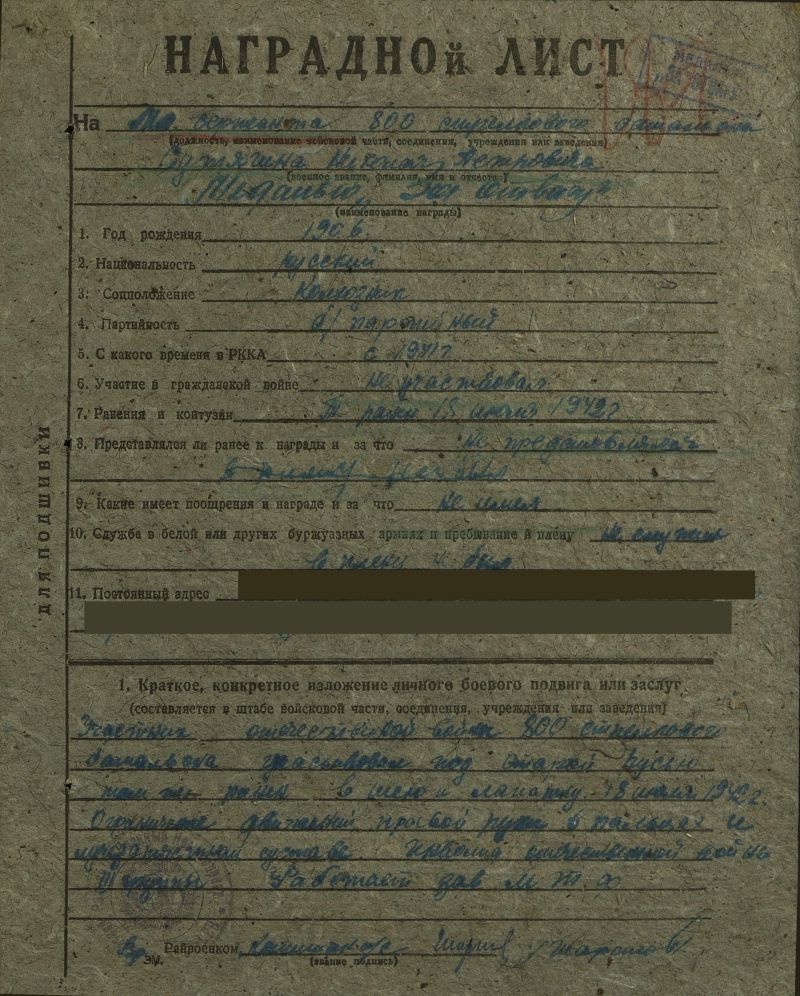 НАГРАДНОЙ ЛИСТ
На Мл. сержанта 800 стрелкового батальона
(должность, наименование войсковой части, соединения, учреждения или заведения)
Николая Петровича
(военное звание, фамилия, имя и отчество)
Медалью „За Отвагу“
(наименование награды)
1. Год рождения 1906
2. Национальность русский
3. Соцположение Колхозник
4. Партийность б/партийный
5. С какого времени в РККА с 1941 г
6. Участие в гражданской войне не участвовал
7. Ранения и контузии ранен 18 июля 1942 г
8. Представлялся ли ранее к награды и за что не представлялся
в плену не был
9. Какие имеет поощрения и награде и за что не имел
10. Служба в белой или других буржуазных армиях и пребывание й плену не служил
в плену не был
11. Постоянный адрес
ДЛЯ ПОДШИВКИ
1. Краткое, конкретное изложение личного боевого подвига или заслуг
(составляется в штабе войсковой части, соединения, учреждения или заведения)
Участник отечественной войны 800 стрелкового
батальона участвовал под Старой Русой
там же ранен в шею и лопатку 18 июля 1942 г.
Ограничение движений правой руки в пальцах и
суставе. Инвалид отечественной войны
III группы Работает зав М.Т.Ф
Вр. Райвоенком
(звание подпись)
ЭМ.